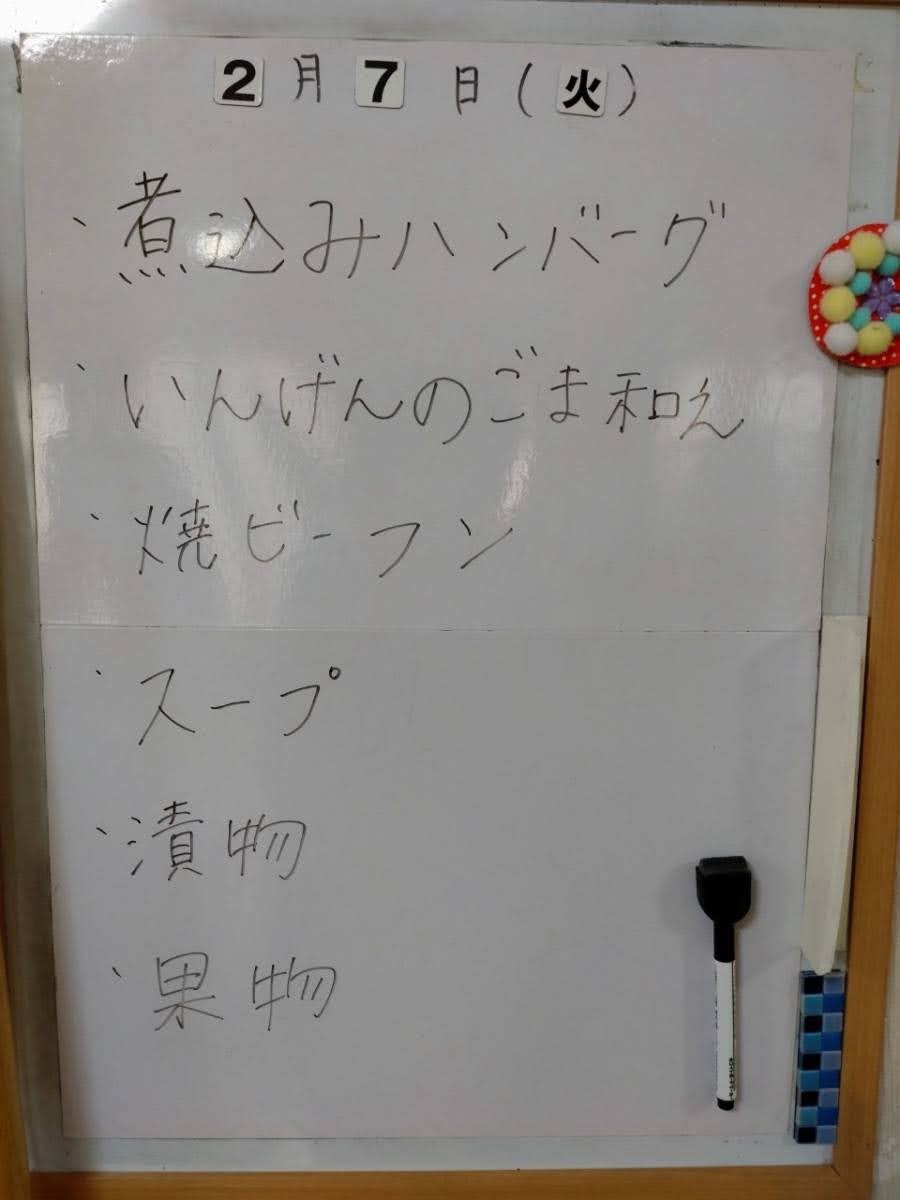 2月7日(火)
、煮込みハンバーグ
、いんげんのごま和え
、焼ビーフン
、スープ
、漬物
、果物